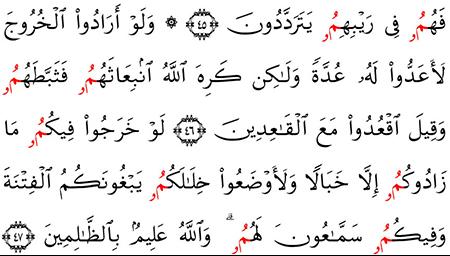 فَهُمُۥ فِى رَيْبِهِمُۥ يَتَرَدَّدُونَ ﴿٤٥﴾ ۞ وَلَوْ أَرَادُوا۟ ٱلْخُرُوجَ
لَأَعَدُّوا۟ لَهُۥ عُدَّةً وَلَـٰكِن كَرِهَ ٱللَّهُ ٱنۢبِعَاثَهُمُۥ فَثَبَّطَهُمُۥ
وَقِيلَ ٱقْعُدُوا۟ مَعَ ٱلْقَـٰعِدِينَ ﴿٤٦﴾ لَوْ خَرَجُوا۟ فِيكُمُۥ مَا
زَادُوكُمُۥ إِلَّا خَبَالًا وَلَأَوْضَعُوا۟ خِلَـٰلَكُمُۥ يَبْغُونَكُمُ ٱلْفِتْنَةَ
وَفِيكُمُۥ سَمَّـٰعُونَ لَهُمُۥ ۗ وَٱللَّهُ عَلِيمٌۢ بِٱلظَّـٰلِمِينَ ﴿٤٧﴾